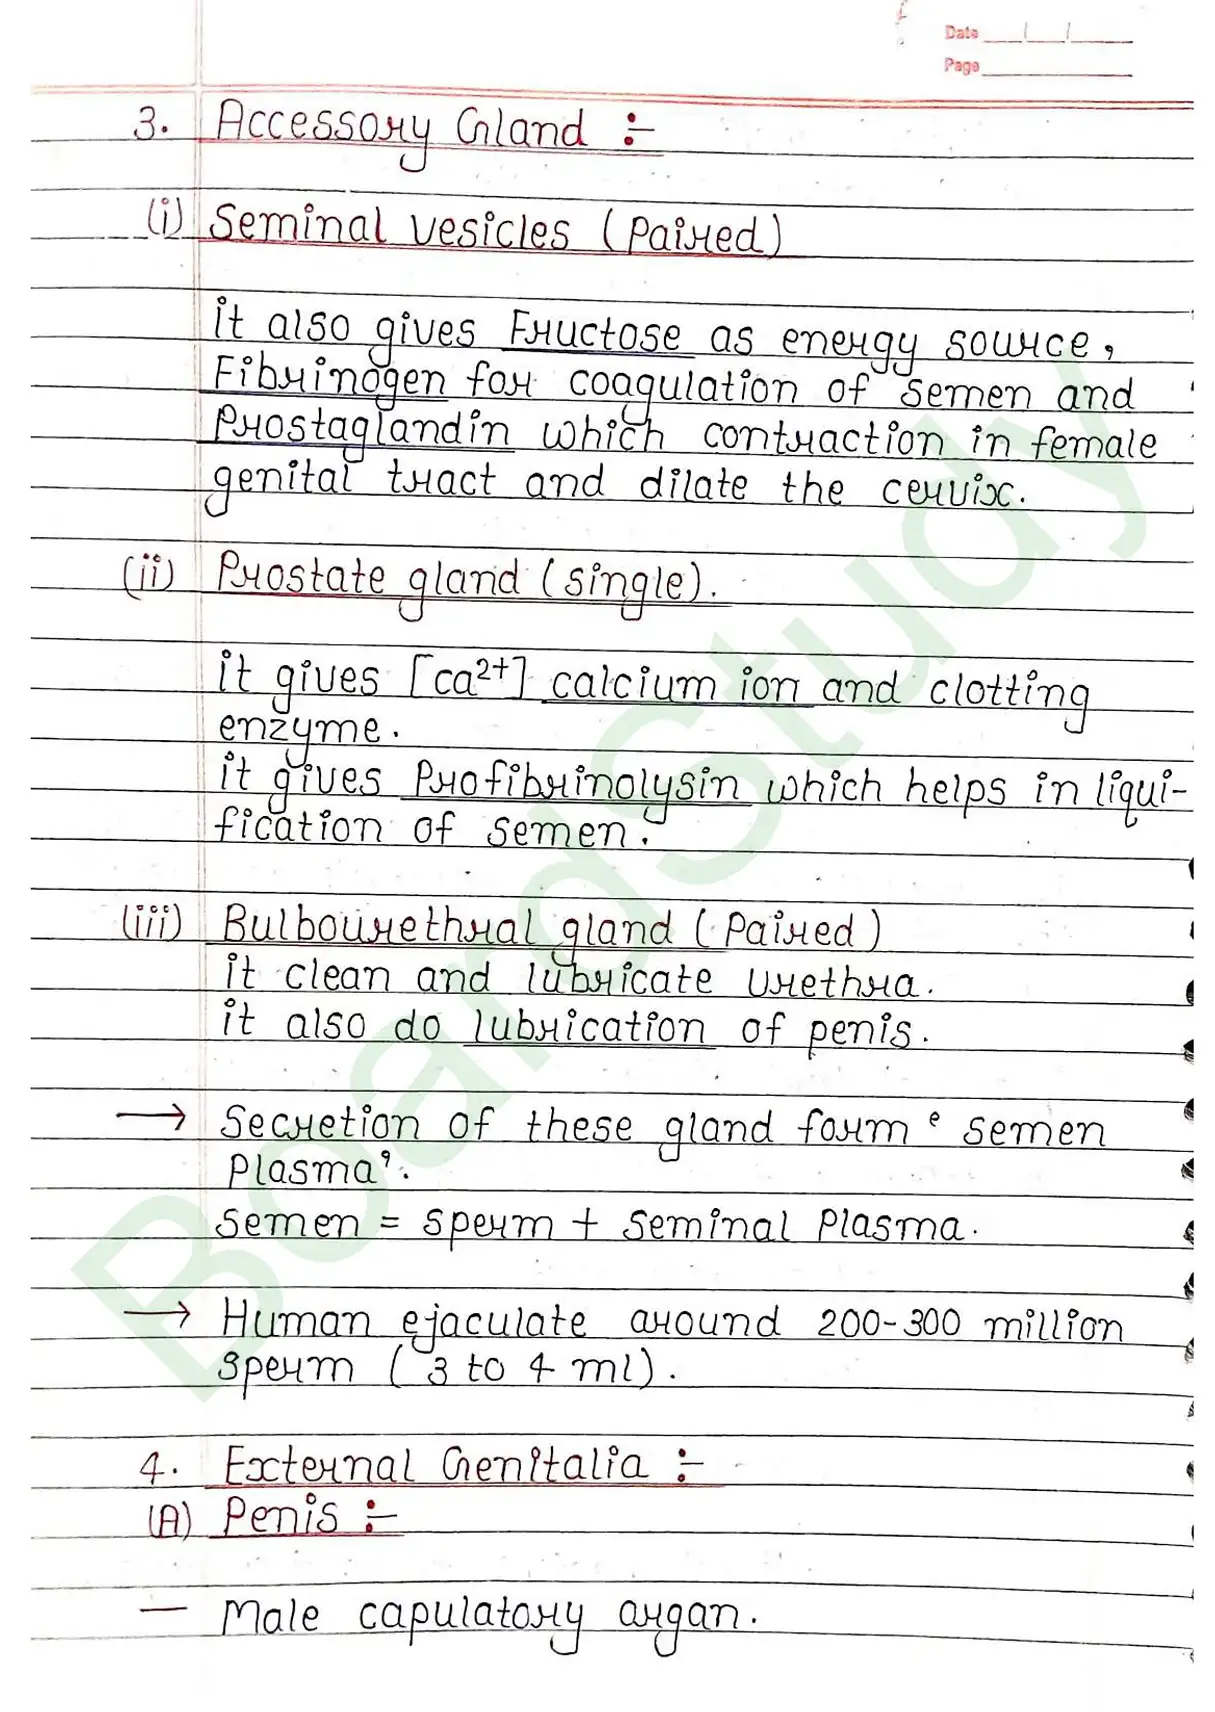 Date __/__/__
Page
3. Accessory Gland :-
(i) Seminal vesicles (Paired)
it also gives Fructose as energy source,
Fibrinogen for coagulation of semen and
Prostaglandin which contraction in female
genital tract and dilate the cervix.
(ii) Prostate gland (single).
it gives [ca²⁺] calcium ion and clotting
enzyme.
it gives Profibrinolysin which helps in liqui-
fication of semen.
(iii) Bulbourethral gland (Paired)
it clean and lubricate urethra.
it also do lubrication of penis.
→ Secretion of these gland form ‘ semen
Plasma’.
semen = sperm + seminal Plasma.
→ Human ejaculate around 200-300 million
sperm ( 3 to 4 ml).
4. External Genitalia :-
(A) Penis :-
— Male capulatory argan.
BoardStudy